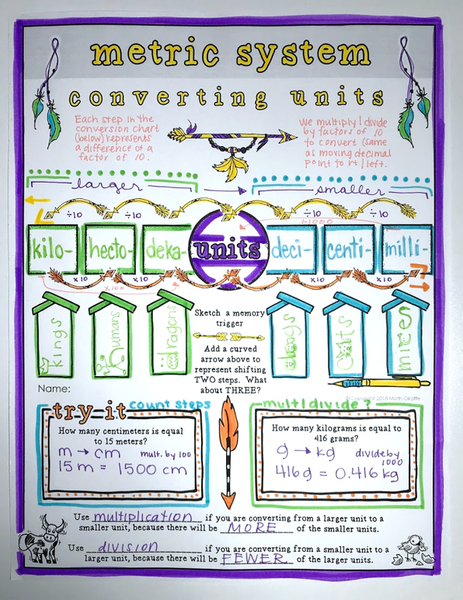 metric system
converting units
Each step in the
conversion chart
(below) represents
a difference of a
factor of 10.
We multiply/divide
by factors of 10
to convert (same
as moving decimal
point to rt/left.
larger
smaller
÷10
÷10
÷10
÷10
÷1000
kilo-
hecto-
deka-
units
deci-
centi-
milli-
x10
x10
x100
x10
x10
kings
humans
dragons
dogs
cats
mice
Sketch a memory
trigger
Add a curved
arrow above to
represent shifting
TWO steps. What
about THREE?
Name:
try-it
count steps
How many centimeters is equal
to 15 meters?
m → cm
mult. by 100
15 m = 1500 cm
mult/divide?
How many kilograms is equal to
416 grams?
g → kg
divide by
1000
416 g = 0.416 kg
Use multiplication if you are converting from a larger unit to a
smaller unit, because there will be MORE of the smaller units.
Use division if you are converting from a smaller unit to a
larger unit, because there will be FEWER of the larger units.